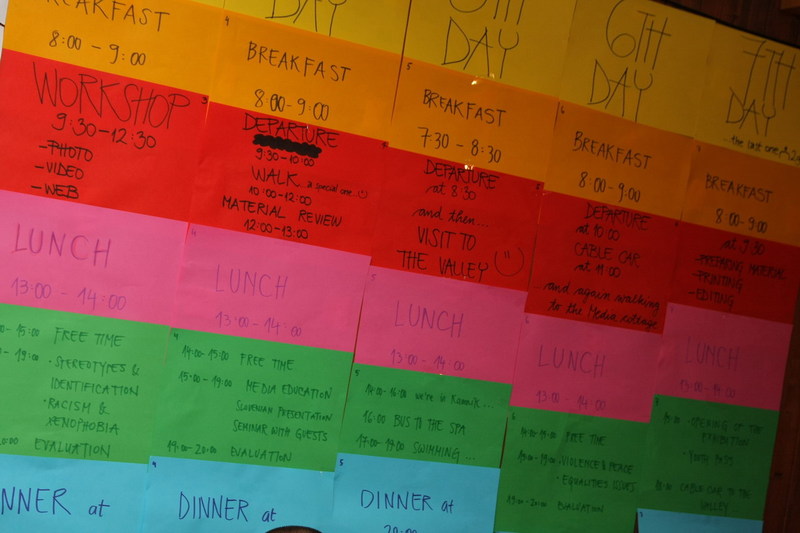 BREAKFAST
8:00 - 9:00
3
WORKSHOP
9:30-12:30
-PHOTO
-VIDEO
-WEB
LUNCH
13:00 - 14:00
15:00 FREE TIME
19:00 • STEREOTYPES &
IDENTIFICATION
• RACISM &
XENOPHOBIA
EVALUATION
DINNER at
DAY
4
BREAKFAST
8:00 - 9:00
DEPARTURE
9:30 - 10:00
WALK... a special one...
10:00-12:00
MATERIAL REVIEW
12:00-13:00
4
LUNCH
13:00 - 14:00
4
14:00-15:00 FREE TIME
15:00-19:00 MEDIA EDUCATION
SLOVENIAN PRESENTATION
SEMINAR WITH GUESTS
19:00-20:00 EVALUATION
4
DINNER at
5TH
DAY
5
BREAKFAST
7:30 - 8:30
DEPARTURE
at 8:30
and then...
VISIT TO
THE VALLEY
5
LUNCH
13:00 - 14:00
5
14:00-16:00 we're in Kamnik...
16:00 BUS TO THE SPA
17:00-19:00 SWIMMING...
5
DINNER at
20:00
6TH
DAY
6
BREAKFAST
8:00-9:00
DEPARTURE
at 10:00
CABLE CAR
at 11:00
and again walking
to the Media cottage
LUNCH
13:00 - 14:00
6
14:00-15:00 FREE TIME
15:00-19:00 • VIOLENCE & PEACE
• EQUALITIES ISSUES
19:00-20:00 EVALUATION
7TH
DAY
...the last one
BREAKFAST
8:00-9:00
at 9:30
-PREPARING MATERIAL
-PRINTING
-EDITING
LUNCH
13:00-14:00
• OPENING OF THE
EXHIBITION
CABLE CAR TO THE
VALLEY